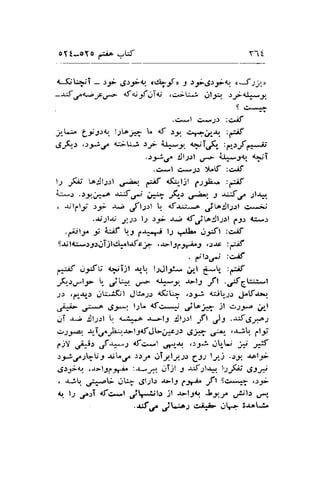 ۳۶٤ کتاب هفتم ۵۲۵-۵۲٤
«بزرگ» به‌خودی‌خود و «کوچک» به‌خودی خود - آنچنانکه
بوسیله‌خرد بتوان شناخت، نه‌آن‌گونه‌که حس‌عرضه‌می‌کند-
چیست ؟
گفت: درست است.
گفتم: بدین‌جهت بود که ما چیزها را به‌دونوع متمایز
تقسیم کردیم: یکی‌آنچه بوسیلهٔ خرد شناخته می‌شود، دیگری
آنچه به‌وسیلهٔ حس ادراك می‌شود.
گفت: کاملا درست است.
گفتم: منظورم ازاینکه گفتم بعضی ادراك‌ها تفکر را
بیدار می‌کنند و بعضی دیگر چنین نمی‌کنند همین‌بود. دستهٔ
نخست ادراك‌هائی هستند که با ادراکی ضد خود توام‌اند ،
دسته دوم ادراك‌هائی‌که ضد خود را دربر ندارند.
گفت: اکنون مطلب را فهمیدم وبا گفتهٔ تو موافقم.
گفتم: عدد، ومفهوم‌واحد، جزءکدامیك‌ازآن‌دودسته‌اند؟
گفت: نمی‌دانم .
گفتم: پاسخ این سئوال‌را باید ازآنچه تاکنون گفتیم
استنتاج‌کنی. اگر واحد بوسیله حس بینائی یا حواس‌دیگر
بحدکامل دریافته شود، چنانکه درمثال انگشتان دیدیم، در
این صورت از چیزهائی نیست‌که ما را بسوی هستی حقیقی
رهبری‌کند. ولی اگر ادراك واحد همیشه با ادراك ضد آن
توام باشد، یعنی چیزی درعین‌حال‌که‌واحدبنظرمی‌آید بصورت
کثیر نیز نمایان شود، بدیهی است‌که رسیدگی دقیقی لازم
خواهد بود. زیرا روح دربرابرآن مردد می‌ماند وناچارمی‌شود
نیروی تفکررا بیدارکند و ازآن بپرسد: مفهوم‌واحد، به‌خودی
خود، چیست؟ اگر مفهوم واحد دارای چنان خاصیتی باشد ،
پس دانش مربوط به‌واحد از دانشهائی است‌که آدمی را به
مشاهدهٔ جهان حقیقت رهنمائی می‌کند.